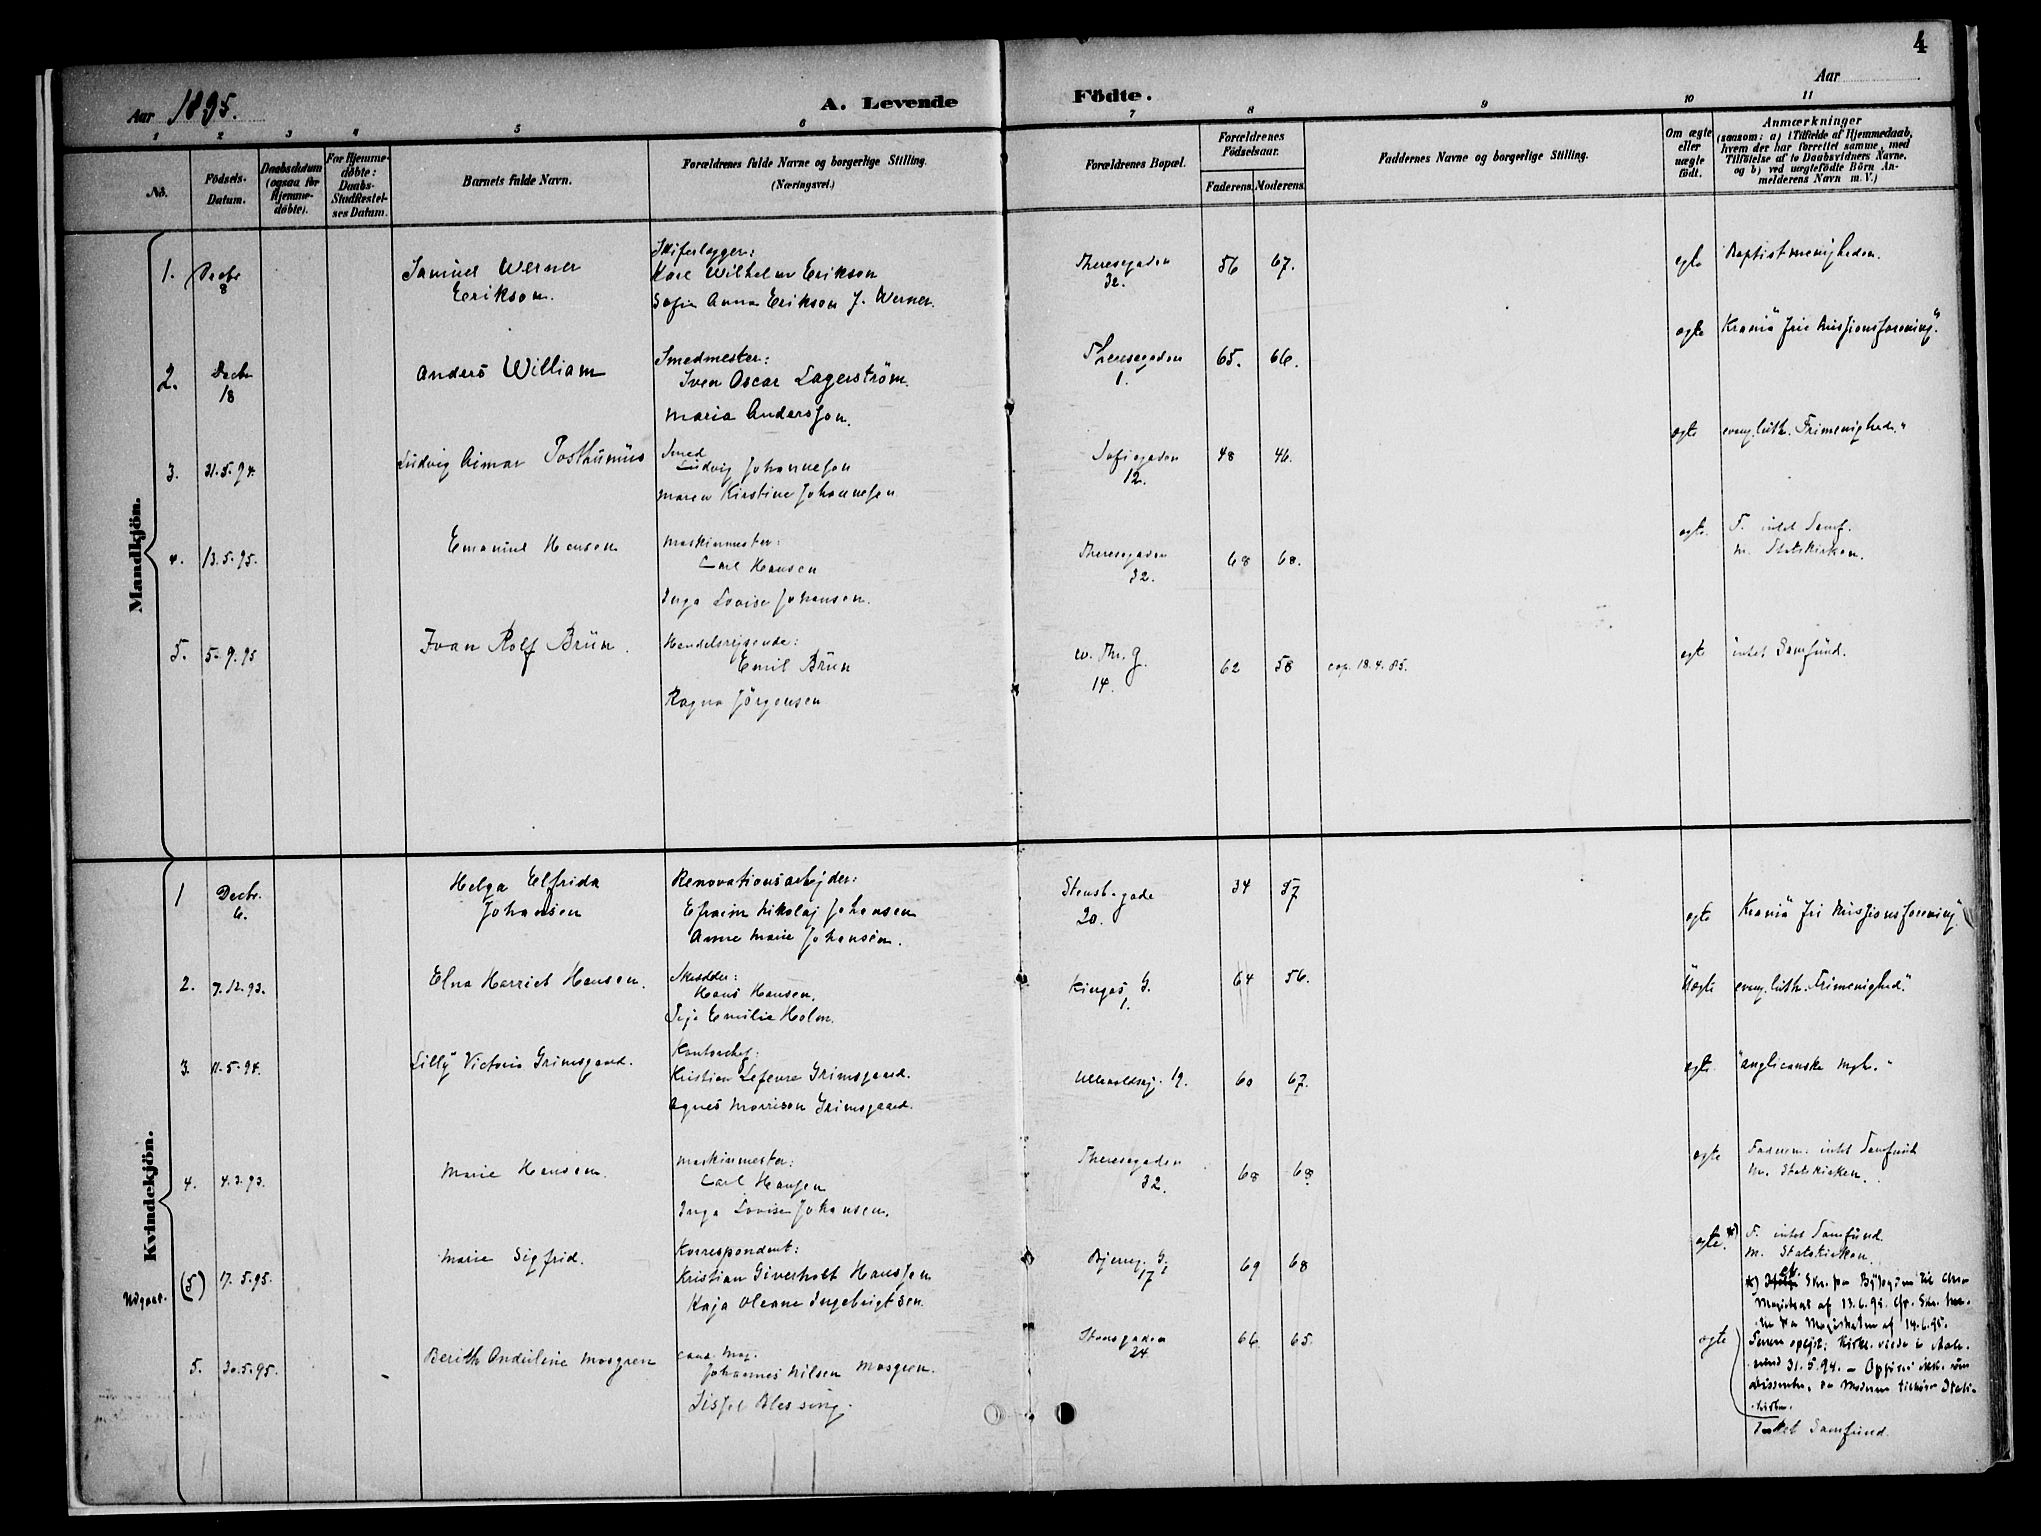 4
Aar 1895.
A. Levende Födte.
Aar
1 2 3 4 5 6 7 8 9 10 11
No.
Födsels-Datum.
Daabsdatum (ogsaa for Hjemme-döbte).
For Hjemme-döbte: Daabs-Stadfæstel-ses Datum.
Barnets fulde Navn.
Forældrenes fulde Navne og borgerlige Stilling.
(Næringsvei.)
Forældrenes Bopæl.
Forældrenes Födselsaar.
Faderens. Moderens.
Faddernes Navne og borgerlige Stilling.
Om ægte eller uægte födt.
Anmærkninger
(saasom: a) i Tilfælde af Hjemmedaab,
hvem der har forrettet samme, med
Tilföielse af to Daabsvidners Navne,
og b) ved uægtefödte Börn An-
melderens Navn m. V.)
Mandkjön.
1. Decbr 8
Samuel Werner
Erikson.
Skiferlægger:
Karl Wilhelm Erikson
Sofie Anna Erikson f. Werner.
Theresegaden
32.
56 67.
egte
Baptistmenigheden.
2. Decbr 18
Anders William
Smedmester:
Sven Oscar Lagerström.
Maria Andersson.
Theresegaden
1.
65. 66.
egte
Krania frie Missionsforening."
3. 31.5.94.
Ludvig Aimar Posthumus
Smed
Ludvig Johannesen
Maren Kirstine Johannesen
Sofiegaden
12.
48 46.
egte
evang. luth. Frimenighed."
4. 13.5.95.
Emanuel Hansen
Maskinmester:
Carl Hansen
Inga Lovise Johansen.
Theresegaden
32.
68 68.
egte.
F. intet Samf.
M. Statskirken.
5. 5.9.95
Ivan Rolf Brün.
Handelsreisende:
Emil Brün
Ragna Jörgensen
14.
62 58
cop. 18.4.85.
egte
intet Samfund.
Kvindekjön.
1 Decbr. 6.
Helga Elfrida
Johansen
Renovationsarbejder:
Efraim Nikolaj Johansen
Anne Marie Johansen.
Stensb. gade
20.
34 57
egte
Krania fri Missionsforening"
2. 7.12.93.
Elna Harriet Hansen.
Skredder:
Hans Hansen.
Emilie Holm.
Kingos G.
1.
64 56.
Uegte
evang. luth. Frimenighed."
3. 11.5.94.
Lilly Victoria Grimsgaard.
Kontorchef:
Kristian Lefevre Grimsgaard.
Agnes Morrison Grimsgaard.
Ullevoldsvj. 19.
60 67.
egte.
"anglicanske mgh."
4. 4.3.93.
Marie Hansen.
Maskinmester:
Carl Hansen
Inga Lovise Johansen.
Theresegaden
32.
68 68.
egte
Faderen intet Samfund
M. Statskirken.
Udgaar. (5) 17.5.95.
Marie Sigfrid.
Korrespondent:
Kristian Giverholt Hanssen
Kaja Oleane Ingebrigtsen.
Bjerreg. G.
17
69 68
egte. *)
F. intet Samfund.
M. Statskirken.
*) Skr. fra Byfogden til
Magistrat af 13.6.95. Cfr. Skr.
fra Magistraten af 14.6.95.
5. 30.5.95.
Berith Anduline Mosgren
cand. Mag.
Johannes Nilsen Mosgren.
Sissel Blessing.
Stensgaden
24.
66 65.
egte
31.5.94.
Moderen
Samfund.